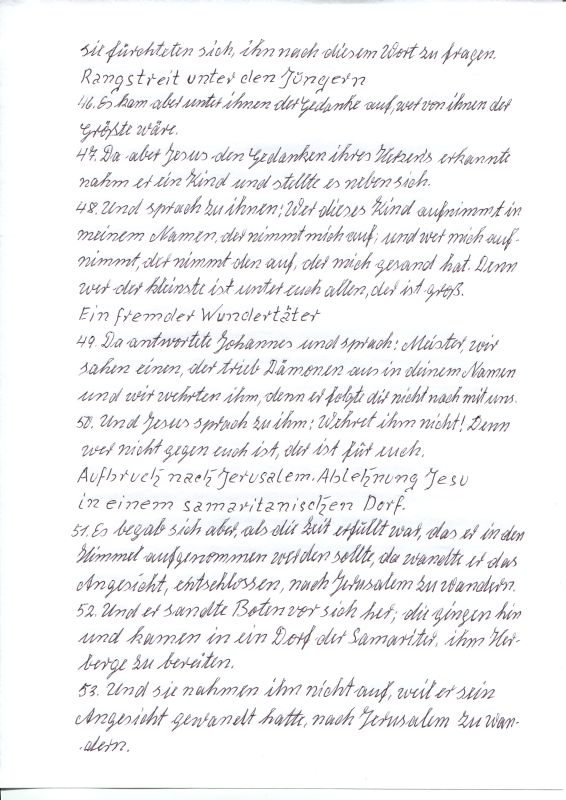 sie fürchteten sich, ihn nach diesem Wort zu fragen.
Rangstreit unter den Jüngern
46. Es kam aber unter ihnen der Gedanke auf, wer von ihnen der
Größte wäre.
47. Da aber Jesus den Gedanken ihres Herzens erkannte
nahm er ein Kind und stellte es neben sich.
48. Und sprach zu ihnen: Wer dieses Kind aufnimmt in
meinem Namen, der nimmt mich auf; und wer mich auf-
nimmt, der nimmt den auf, der mich gesand hat. Denn
wer der kleinste ist unter euch allen, der ist groß.
Ein fremder Wundertäter
49. Da antwortete Johannes und sprach: Meister, wir
sahen einen, der trieb Dämonen aus in deinem Namen
und wir wehrten ihm, denn er folgte dir nicht nach mit uns.
50. Und Jesus sprach zu ihm: Wehret ihm nicht! Denn
wer nicht gegen euch ist, der ist für euch.
Aufbruch nach Jerusalem. Ablehnung Jesu
in einem samaritanischen Dorf.
51. Es begab sich aber, als die Zeit erfüllt war, das er in den
Himmel aufgenommen werden sollte, da wandte er das
Angesicht, entschlossen, nach Jerusalem zu wandern.
52. Und er sandte Boten vor sich her; die gingen hin
und kamen in ein Dorf der Samariter, ihm Her-
berge zu bereiten.
53. Und sie nahmen ihn nicht auf, weil er sein
Angesicht gewandt hatte, nach Jerusalem zu wan-
dern.